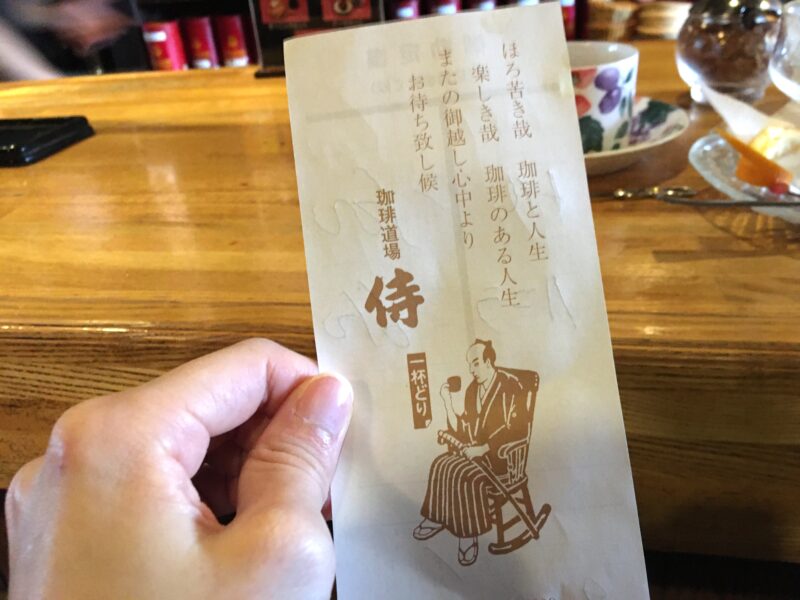 ほろ苦き哉　珈琲と人生
楽しき哉　珈琲のある人生
またの御越し心中より
お待ち致し候
珈琲道場
侍
一杯どり